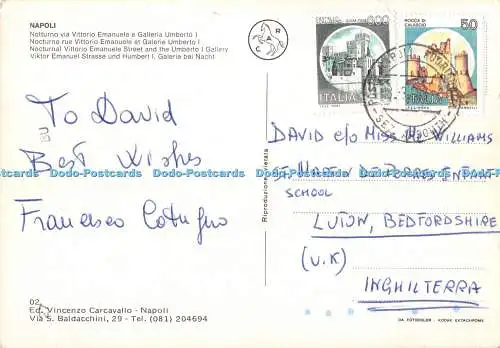 NAPOLI
Notturno via Vittorio Emanuele e Galleria Umberto I
Nocturne rue Vittorio Emanuele et Galerie Umberto I
Nocturnal Vittorio Emanuele Street and the Umberto I Gallery
Viktor Emanuel Strasse und Humbert I. Galerie bei Nacht
C R
ROCCA DI
CALASCIO
50
ITALIA
ITALIA
To David
Best Wishes
Francesco Cotugno
BU
Riproduzione vietata
DAVID c/o Miss Mc WILLIAMS
ST. MARTIN DE PORRES INFANT
SCHOOL
LUTON, BEDFORDSHIRE
(U.K)
INGHILTERRA
Dodo-Postcards Dodo-Postcards Dodo-Postcards Dodo-Postcards Dodo-Postcards Dodo-Postcards
02
Ed. Vincenzo Carcavallo - Napoli
Via S. Baldacchini, 29 - Tel. (081) 204694
DA FOTOCOLOR - KODAK EKTACHROME